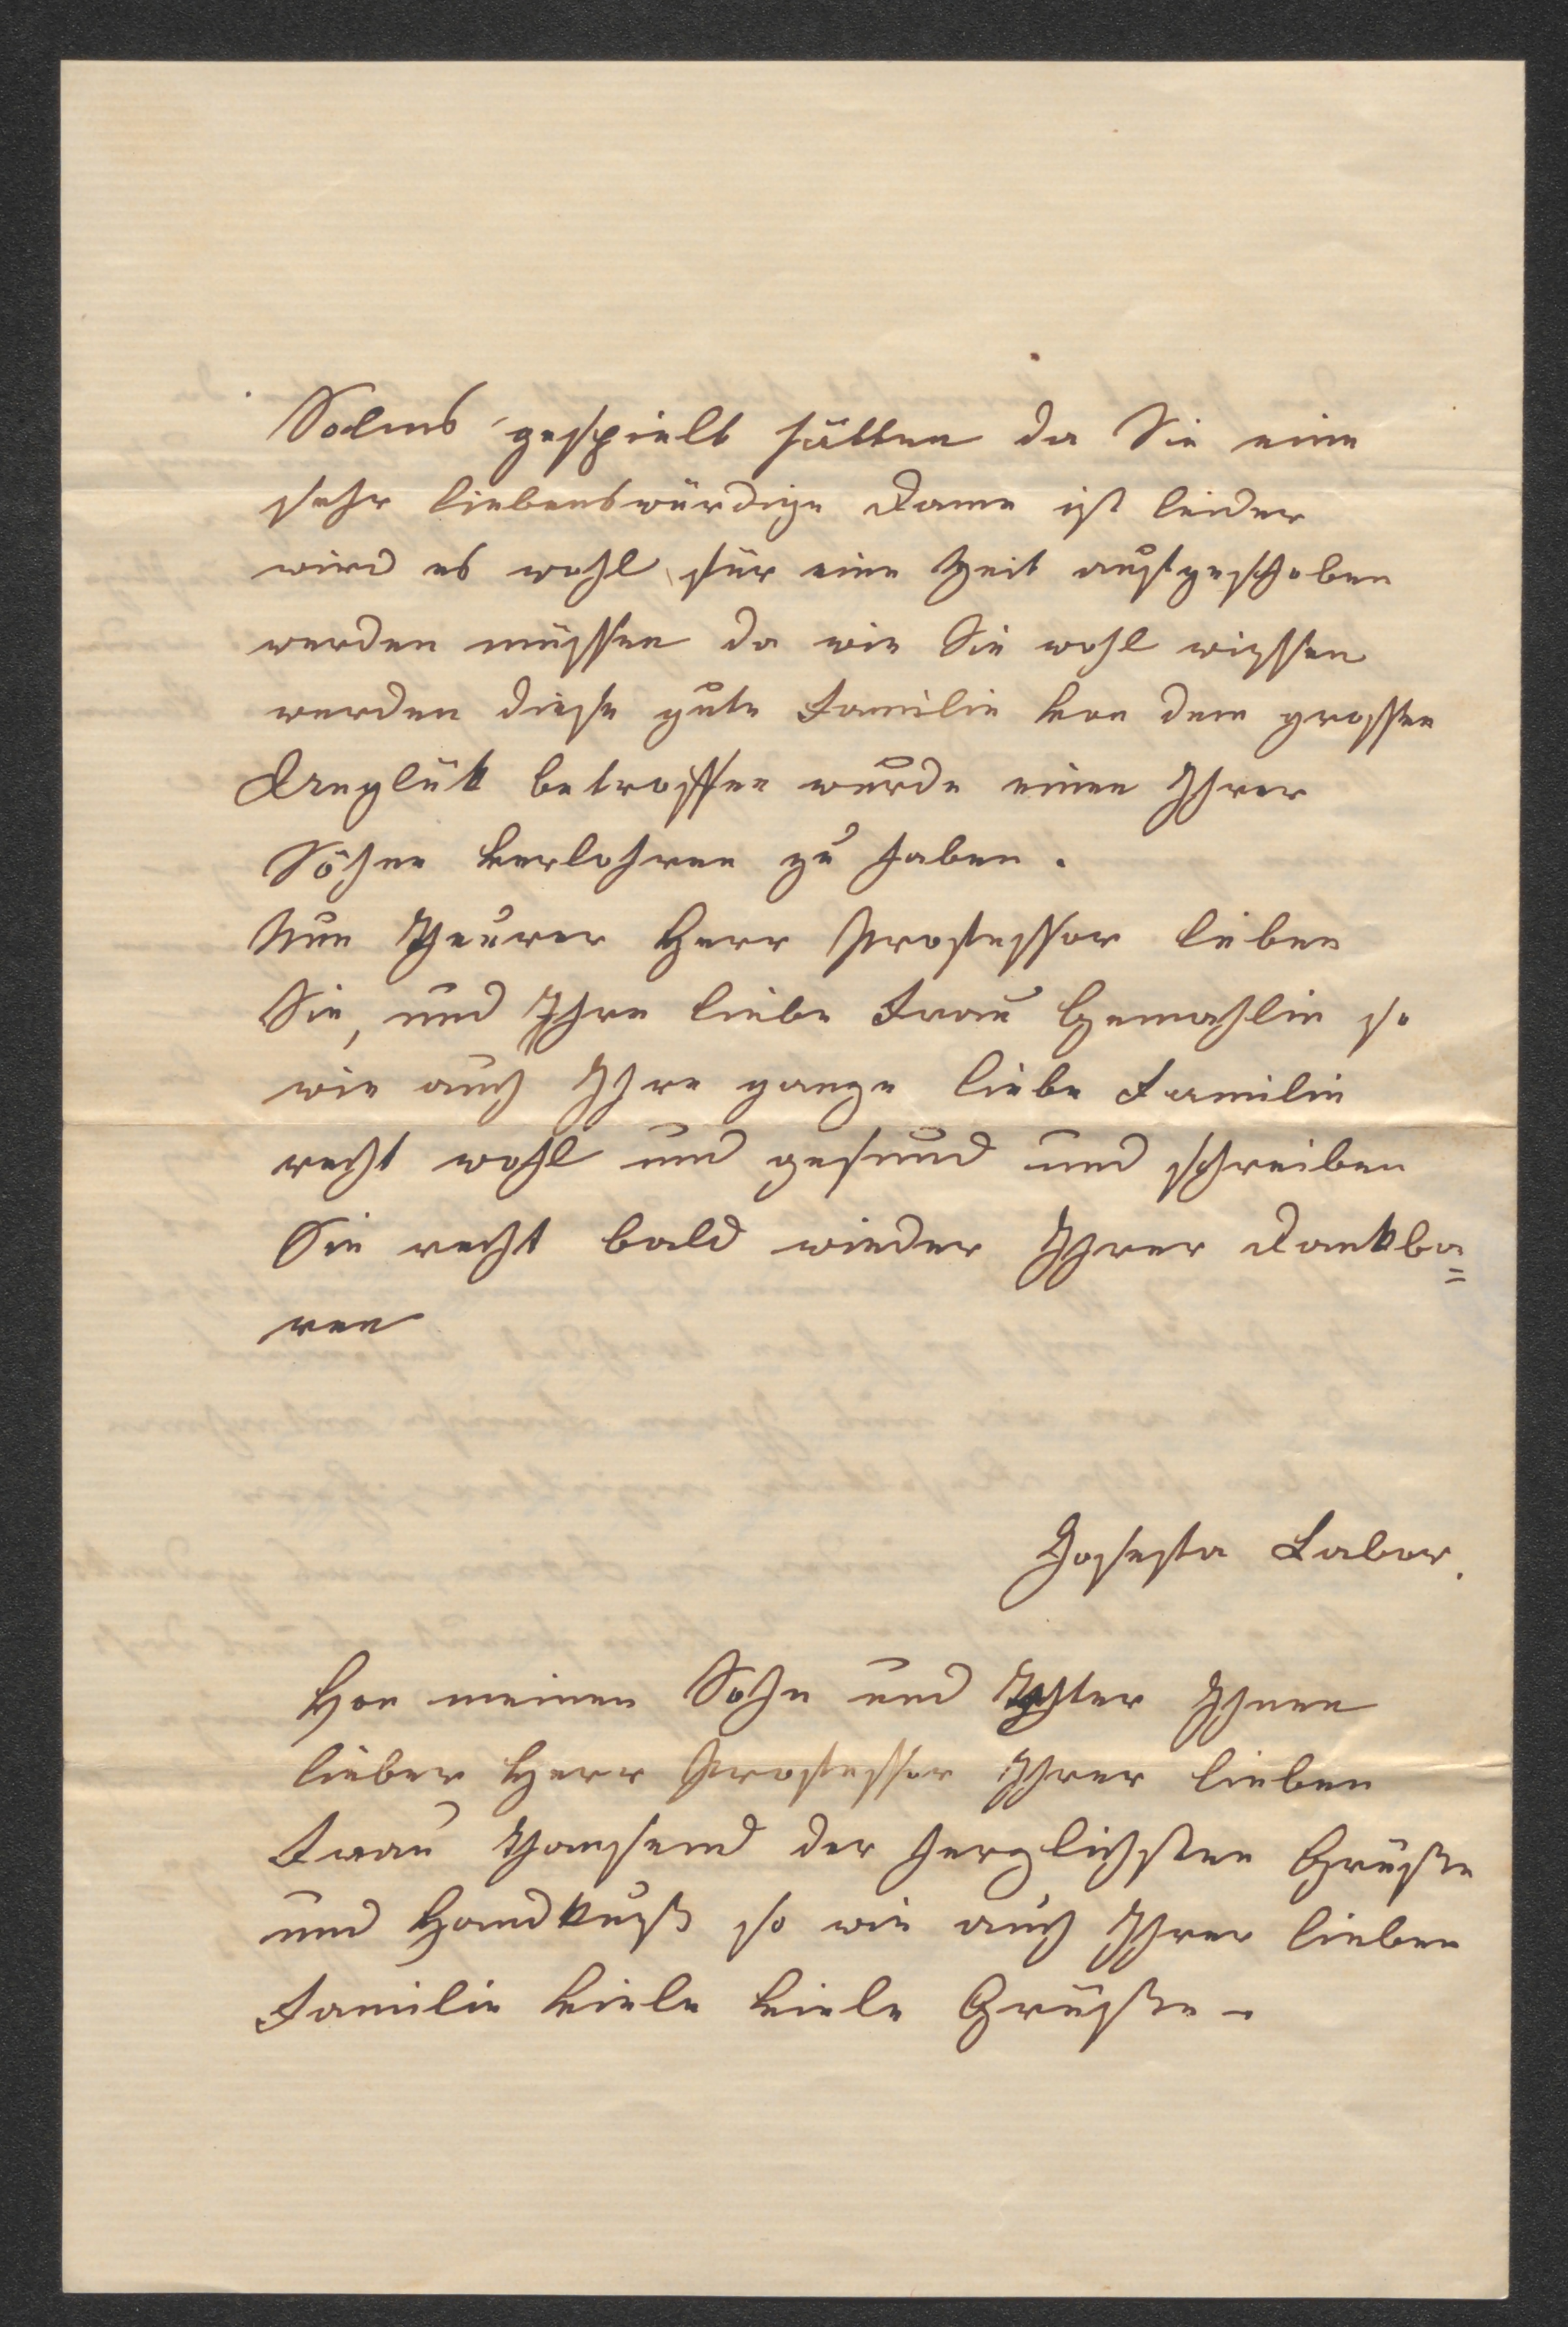 Solms gespielt hätten da Sie eine
sehr liebenswürdige Dame ist leider
wird es wohl für eine Zeit aufgeschoben
werden müssen da wie Sie wohl wissen
werden diese gute Familie von dem grossen
Unglük betroffen wurde einen Ihrer
Söhne verlohren zu haben.
Nun Theurer Herr Professor leben
Sie, und Ihre liebe Frau Gemahlin so
wie auch Ihre ganze liebe Familie
recht wohl und gesund und schreiben
Sie recht bald wieder Ihrer Dankba=
ren
Josefa Labor.
Von meinen Sohn und Tochter Ihnen
lieber Herr Professor Ihrer lieben
Frau Thausend der herzlichsten Grüße
und Handkuß so wie auch Ihrer lieben
Familie viele viele Grüße.